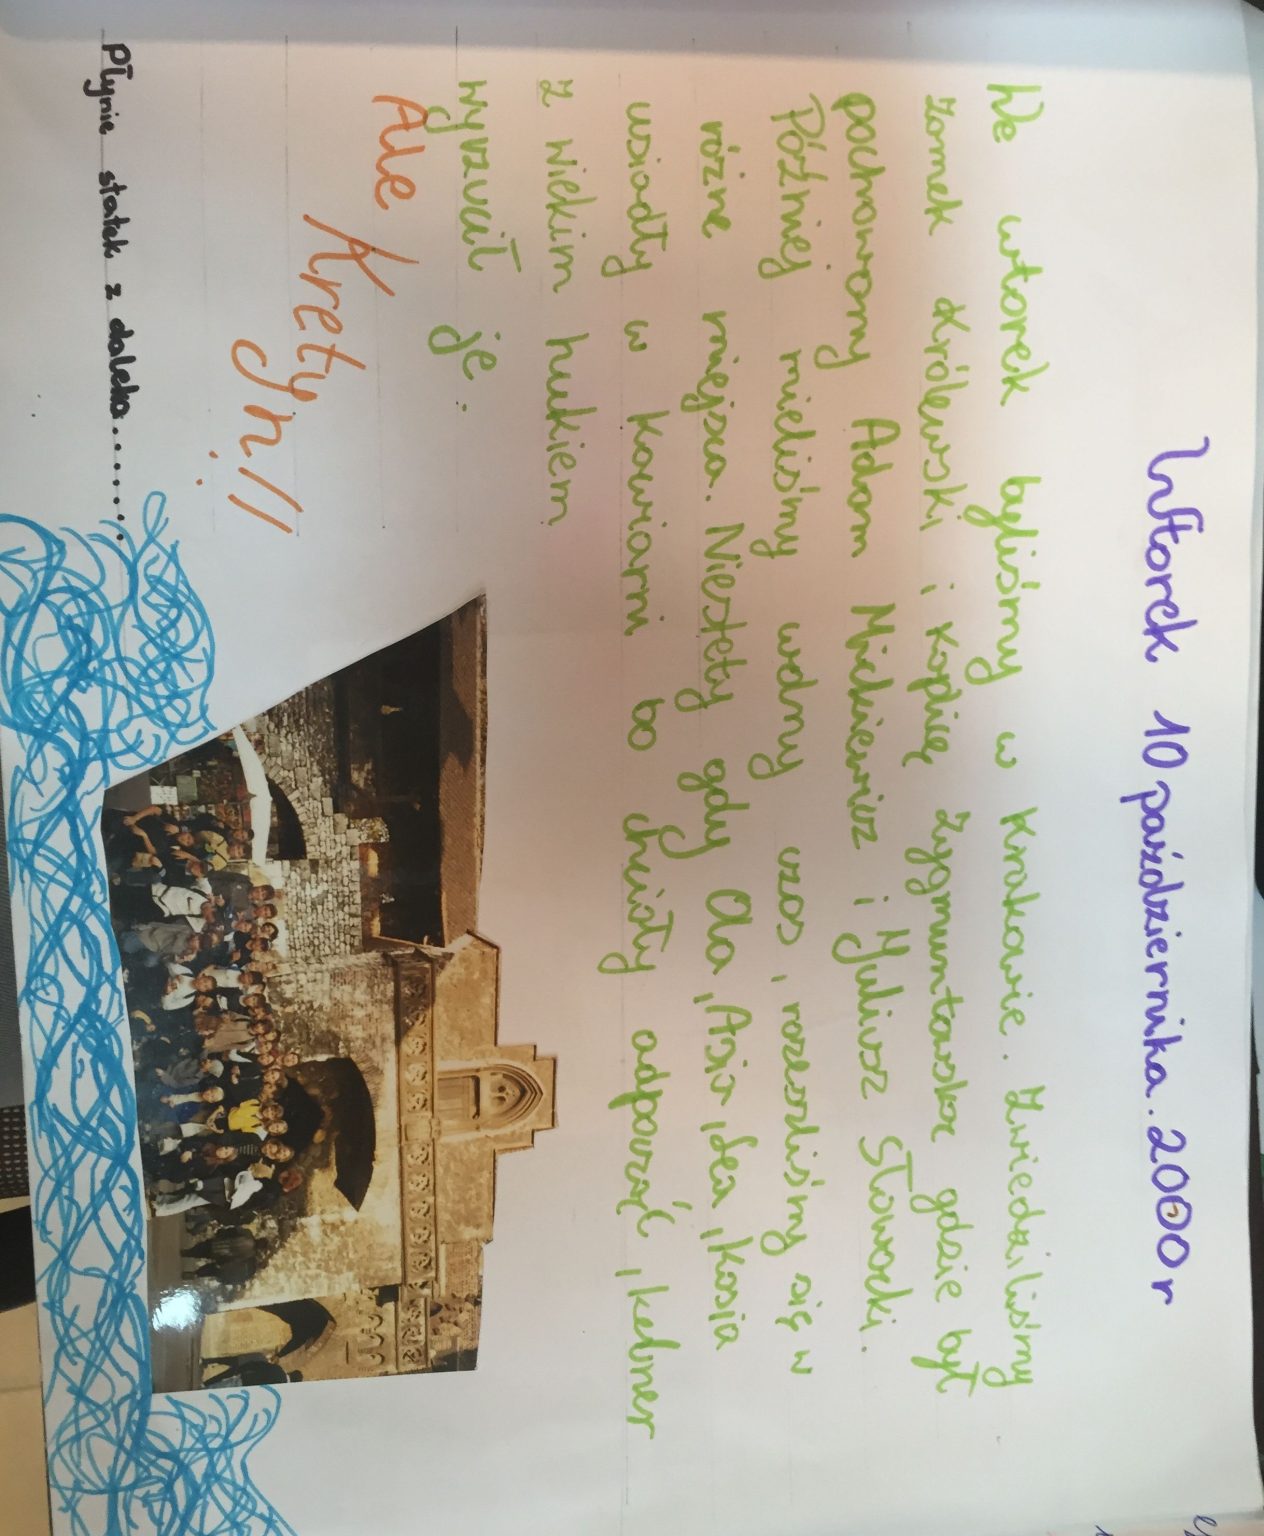 Wtorek 10 października. 2000 r
We wtorek byliśmy w Krakowie. Zwiedziliśmy
zamek Królewski i kaplicę Zygmuntowską gdzie był
pochowany Adam Mickiewicz i Juliusz Słowacki.
Później mieliśmy wolny czas, rozeszliśmy się w
różne miejsca. Niestety gdy Ola, Asia, Lea, Kasia
usiadły w kawiarni bo chciały odpocząć, kelner
z wiekim hukiem
wyrzucił je.
Ale
Krety
cyn!!
Płynie statek z daleka.......